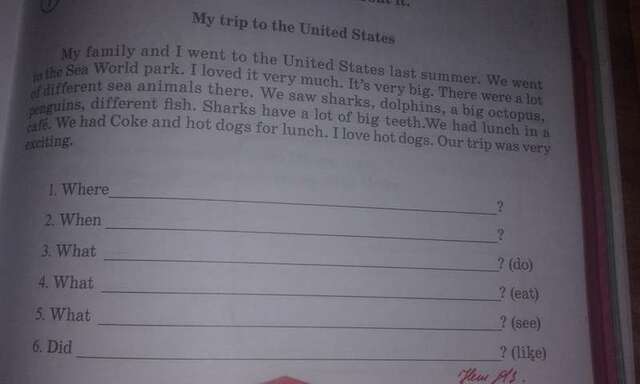 it.
My trip to the United States
My family and I went to the United States last summer. We went
to the Sea World park. I loved it very much. It's very big. There were a lot
of different sea animals there. We saw sharks, dolphins, a big octopus,
penguins, different fish. Sharks have a lot of big teeth.We had lunch in a
café. We had Coke and hot dogs for lunch. I love hot dogs. Our trip was very
exciting.
1. Where ?
2. When ?
3. What ? (do)
4. What ? (eat)
5. What ? (see)
6. Did ? (like)